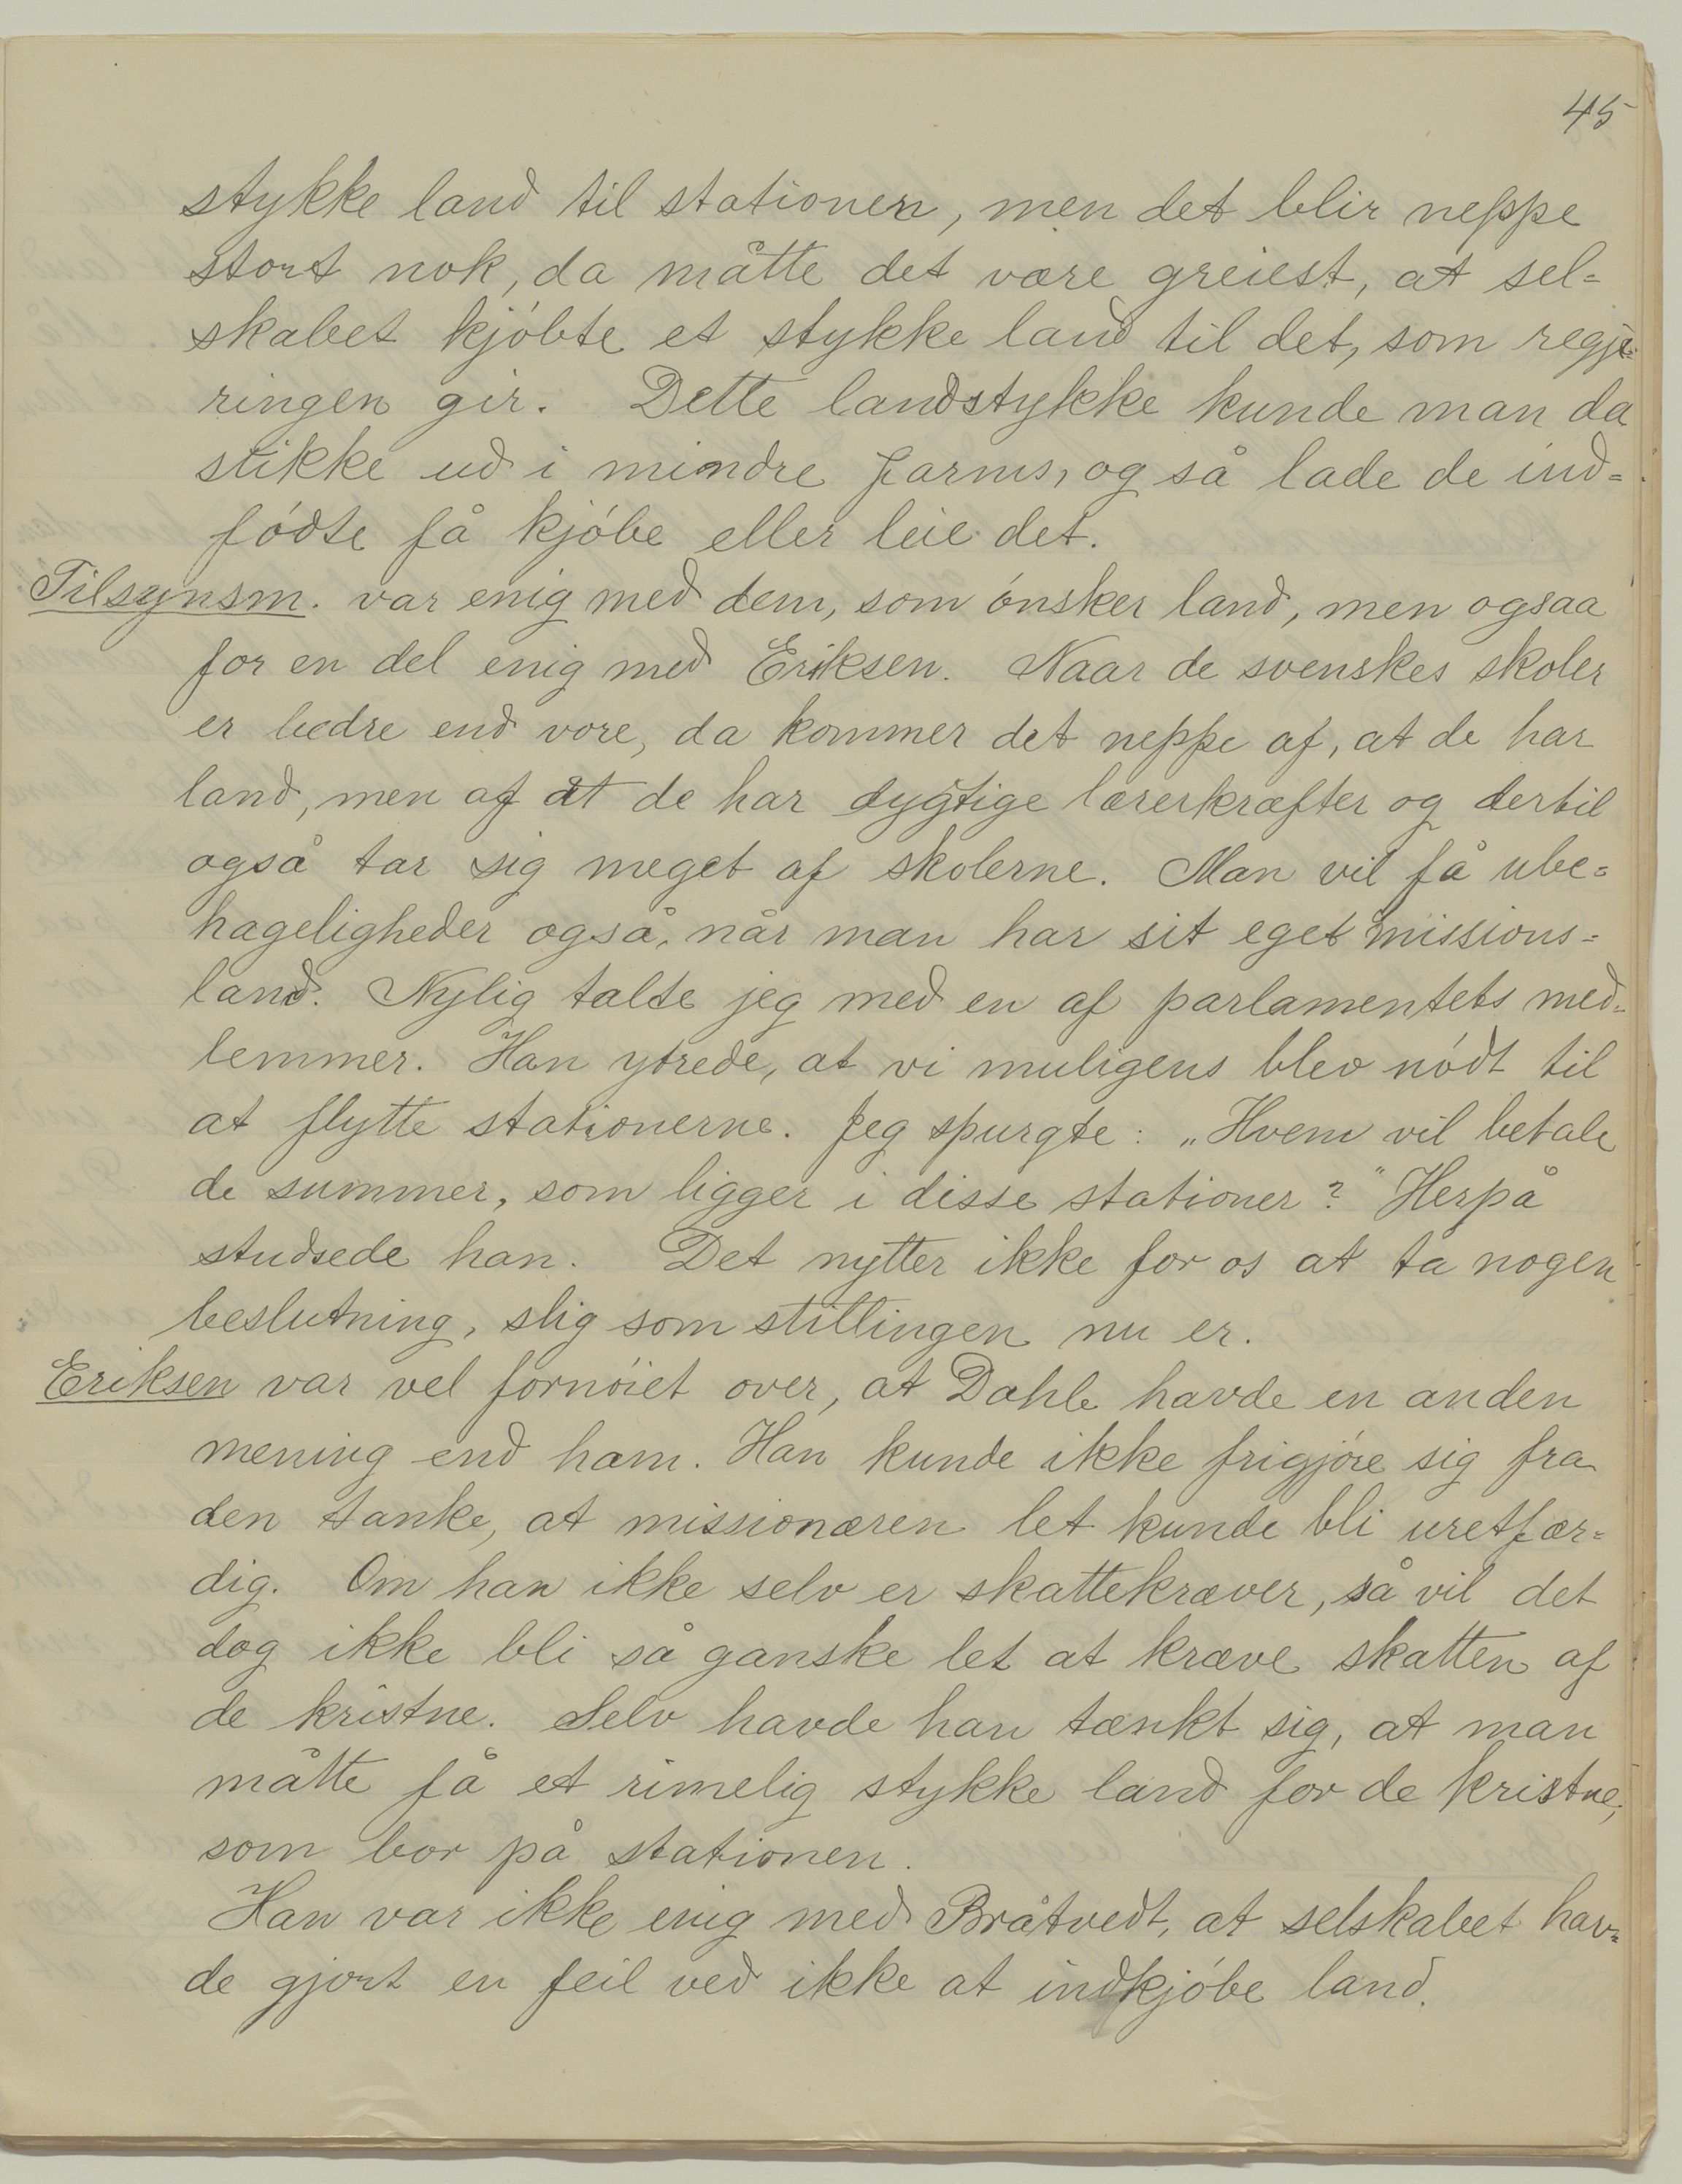 45
stykke land til stationen, men det blir neppe
stort nok, da måtte det være greiest, at sel=
skabet kjóbte et stykke land til det, som regje=
ringen gir. Dette landstykke kunde man da
stikke ud i mindre farms, og så lade de ind=
fódte få kjóbe eller leie det.
Tilsynsm. var enig med dem, som ónsker land, men ogsaa
for en del enig med Eriksen. Naar de svenskes skoler
er bedre end vore, da kommer det neppe af, at de har
land, men af at de har dygtige lærerkræfter og dertil
også tar sig meget af skolerne. Man vil få ube=
hageligheder også, når man har sit eget missions=
land. Nylig talte jeg med en af parlamentets med=
lemmer. Han ytrede, at vi muligens blev nódt til
at flytte stationerne. Jeg spurgte: „Hvem vil betale
de summer, som ligger i disse stationer?" Herpå
studsede han. Det nytter ikke for os at ta nogen
beslutning, slig som stillingen nu er.
Eriksen var vel fornóiet over, at Dahle havde en anden
mening end ham. Han kunde ikke frigjóre sig fra
den tanke, at missionæren let kunde bli uretfær=
dig. Om han ikke selv er skattekræver, så vil det
dog ikke bli så ganske let at kræve skatten af
de kristne. Selv havde han tænkt sig, at man
måtte få et rimelig stykke land for de kristne,
som bor på stationen.
Han var ikke enig med Bråtvedt, at selskabet hav=
de gjort en feil ved ikke at indkjóbe land.